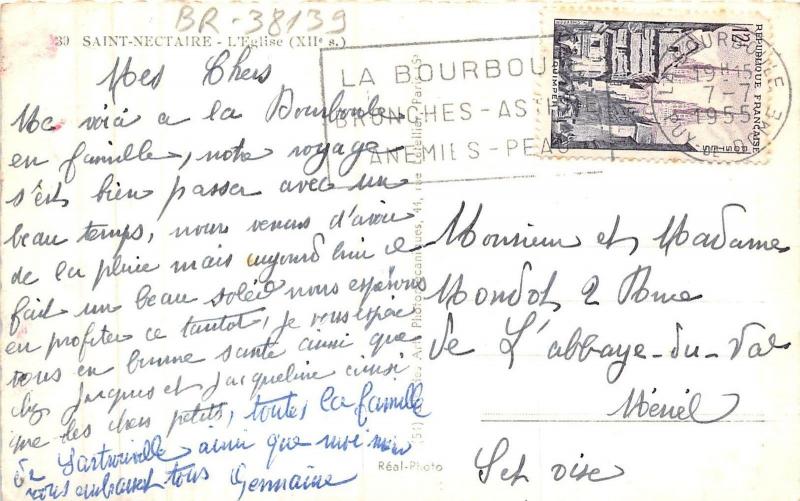 BR-38139
30 SAINT-NECTAIRE - L'Eglise (XIIe s.)
Mes Chers
Me voià a la Bourboule
en famille, notre voyage
s'est bien passer avec un
beau temps, nous venons d'avoir
de la pluie mais aujourd'hui il
fait un beau soleil nous espérons
en profiter ce tantot, je vous espère
tous en bonne santé ainsi que
chez Jacques et Jacqueline ainsi
que les chers petits, toutes la famille
de Sartrouville ainsi que moi
vous embrassent tous Germaine
LA BOURBOU
BRONCHES - AST
ANEMIES - PEAU
12F
REPUBLIQUE FRANÇAISE
POSTES
QUIMPER
LA BOURBOULE
19H15
7-7
1955
PUY DE DOME
Arts Photomécaniques, 44, rue Letellier, Paris
Réal-Photo
Monsieur et Madame
Mondot 2 Rue
de L'abbaye-du-Val
Mériel
Set oise